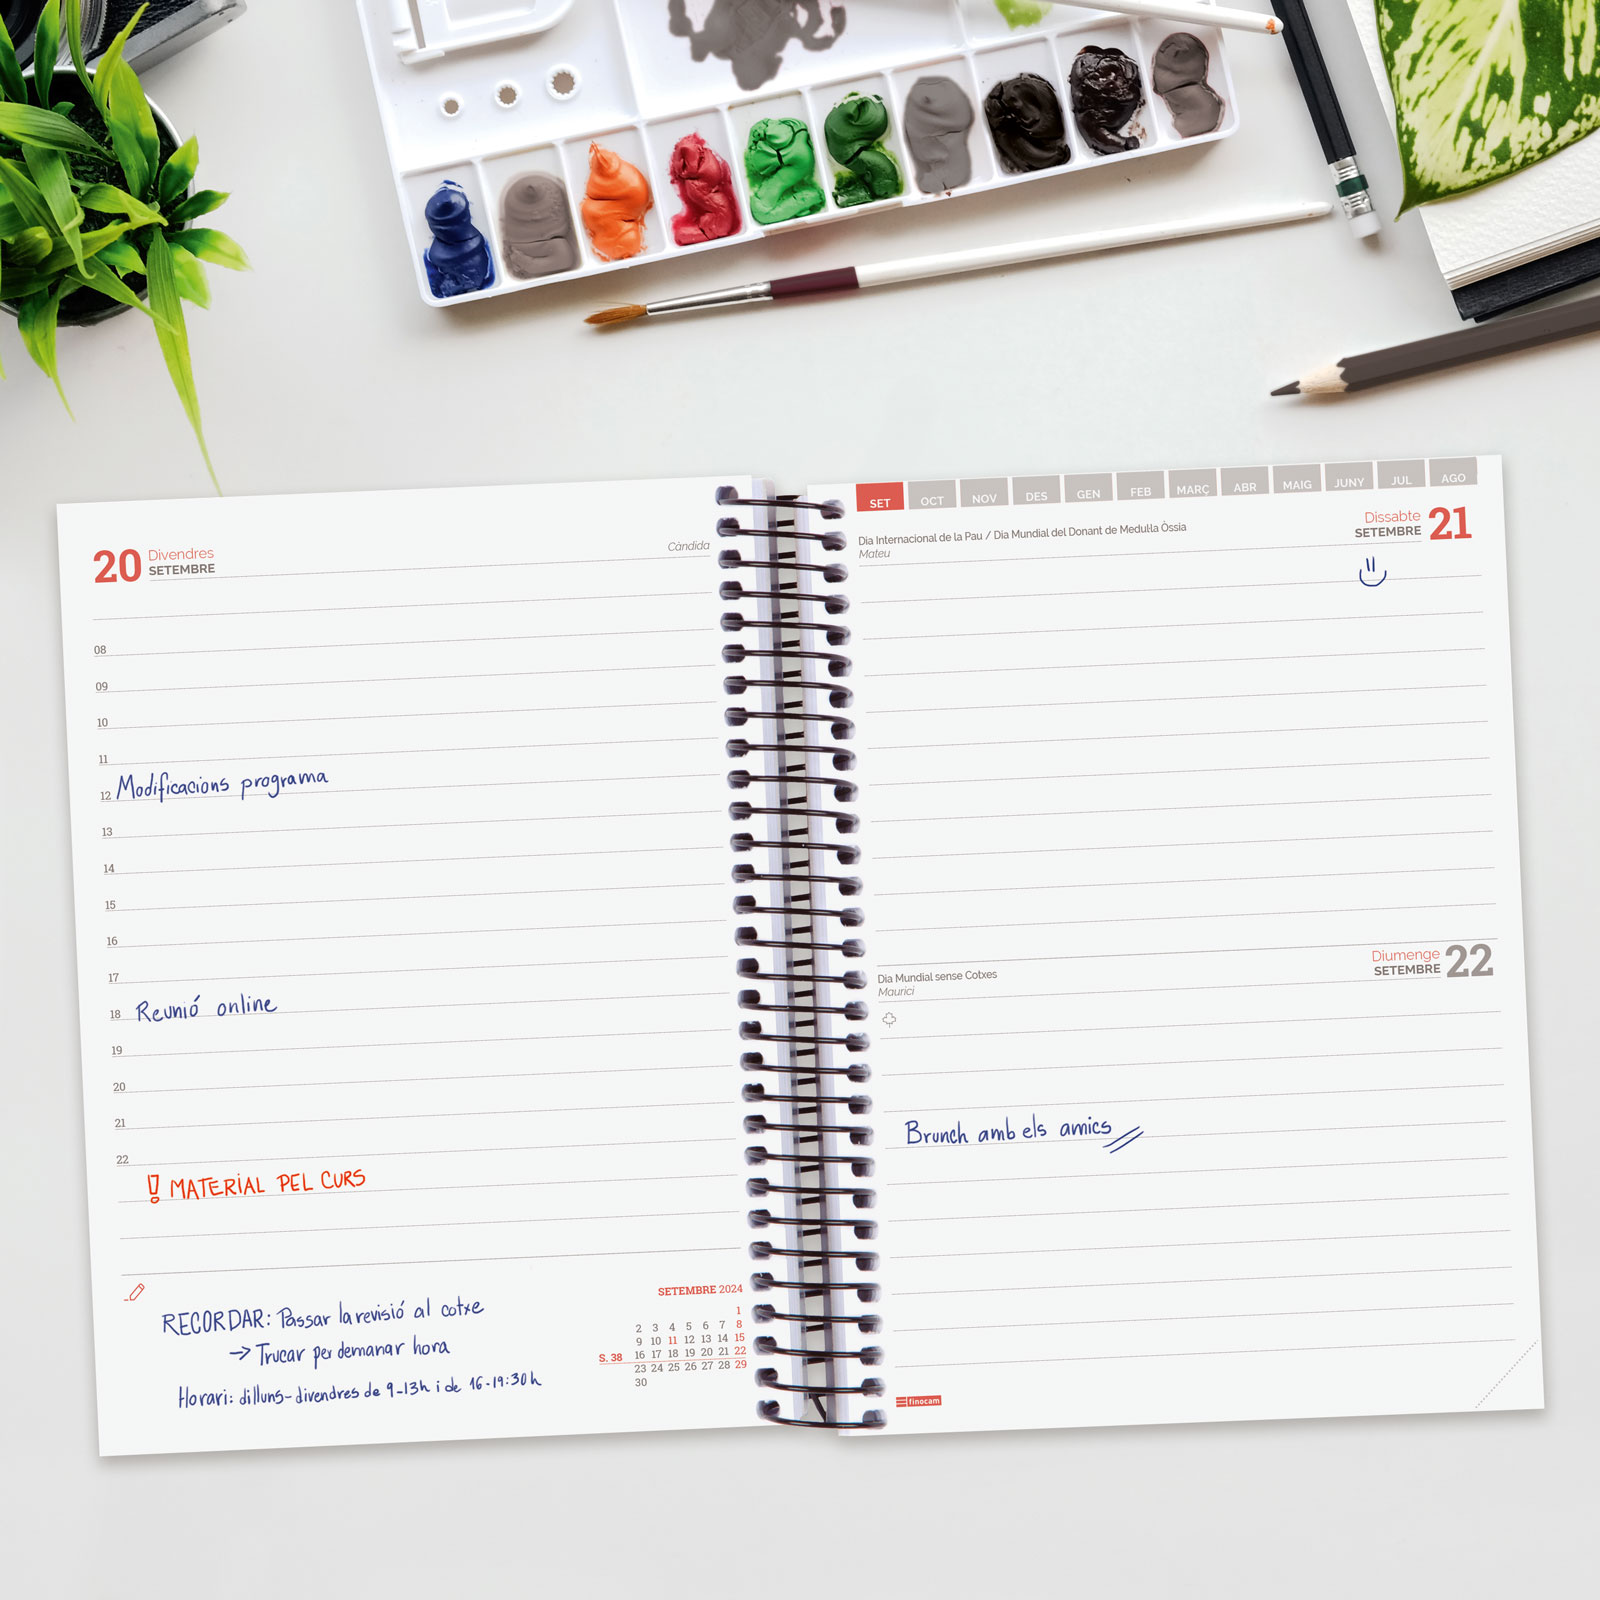 20 Divendres
SETEMBRE
Càndida
08
09
10
11
12 Modificacions programa
13
14
15
16
17
18 Reunió online
19
20
21
22
! MATERIAL PEL CURS
RECORDAR: Passar la revisió al cotxe
→ Trucar per demanar hora
Horari: dilluns-divendres de 9-13h i de 16-19:30h
SETEMBRE 2024
1
2 3 4 5 6 7 8
9 10 11 12 13 14 15
S. 38 16 17 18 19 20 21 22
23 24 25 26 27 28 29
30
SET OCT NOV DES GEN FEB MARÇ ABR MAIG JUNY JUL AGO
Dia Internacional de la Pau / Dia Mundial del Donant de Medul·la Òssia
Mateu
Dissabte
SETEMBRE 21
Dia Mundial sense Cotxes
Maurici
Diumenge
SETEMBRE 22
Brunch amb els amics
finocam